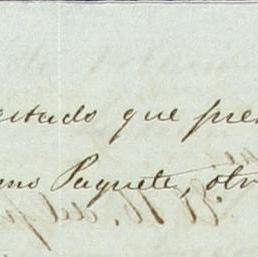 estado que pre
mo Paquete, otr